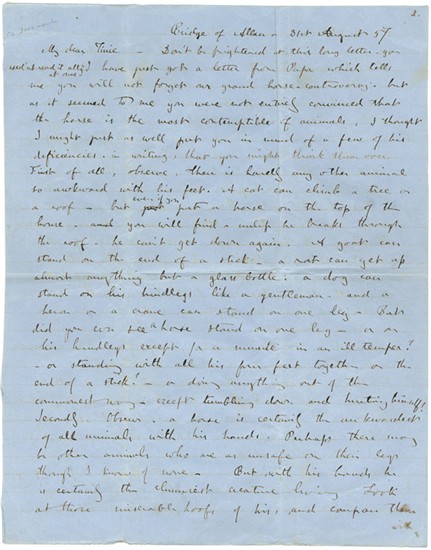 2.
Bridge of Allan - 31st August 57
My dear - Don't be frightened at this long letter - you
need not read it all at once I have just got a letter from Papa which tells
me you will not forget our grand horse-controversy. but
as it seemed to me you were not entirely convinced that
the horse is the most contemptible of animals, I thought
I might just as well put you in mind of a few of his
deficiencies. in writing, that you might think them over.
First of all, observe, there is hardly any other animal
so awkward with his feet. A cat can climb a tree or
a roof - but even if you put a horse on the top of the
house - and you will find - unless he breaks through
the roof - he can't get down again. A goat can
stand on the end of a stick - a rat can get up
almost anything but a glass bottle: a dog can
stand on his hindlegs like a gentleman - and a
heron or a crane can stand on one leg - But
did you ever see a horse stand on one leg - or on
his hindlegs except for a minute in an ill temper?
- or standing with all his four feet together on the
end of a stick! - or doing anything out of the
commonest way - except tumbling down and hurting himself!
Secondly. Observe. a horse is certainly the awkwardest
of all animals with his hands. Perhaps there may
be other animals who are as unsafe on their legs
though I know of none - But with his hands he
is certainly the clumsiest creature living Look
at those miserable hoofs of his, and compare them
with